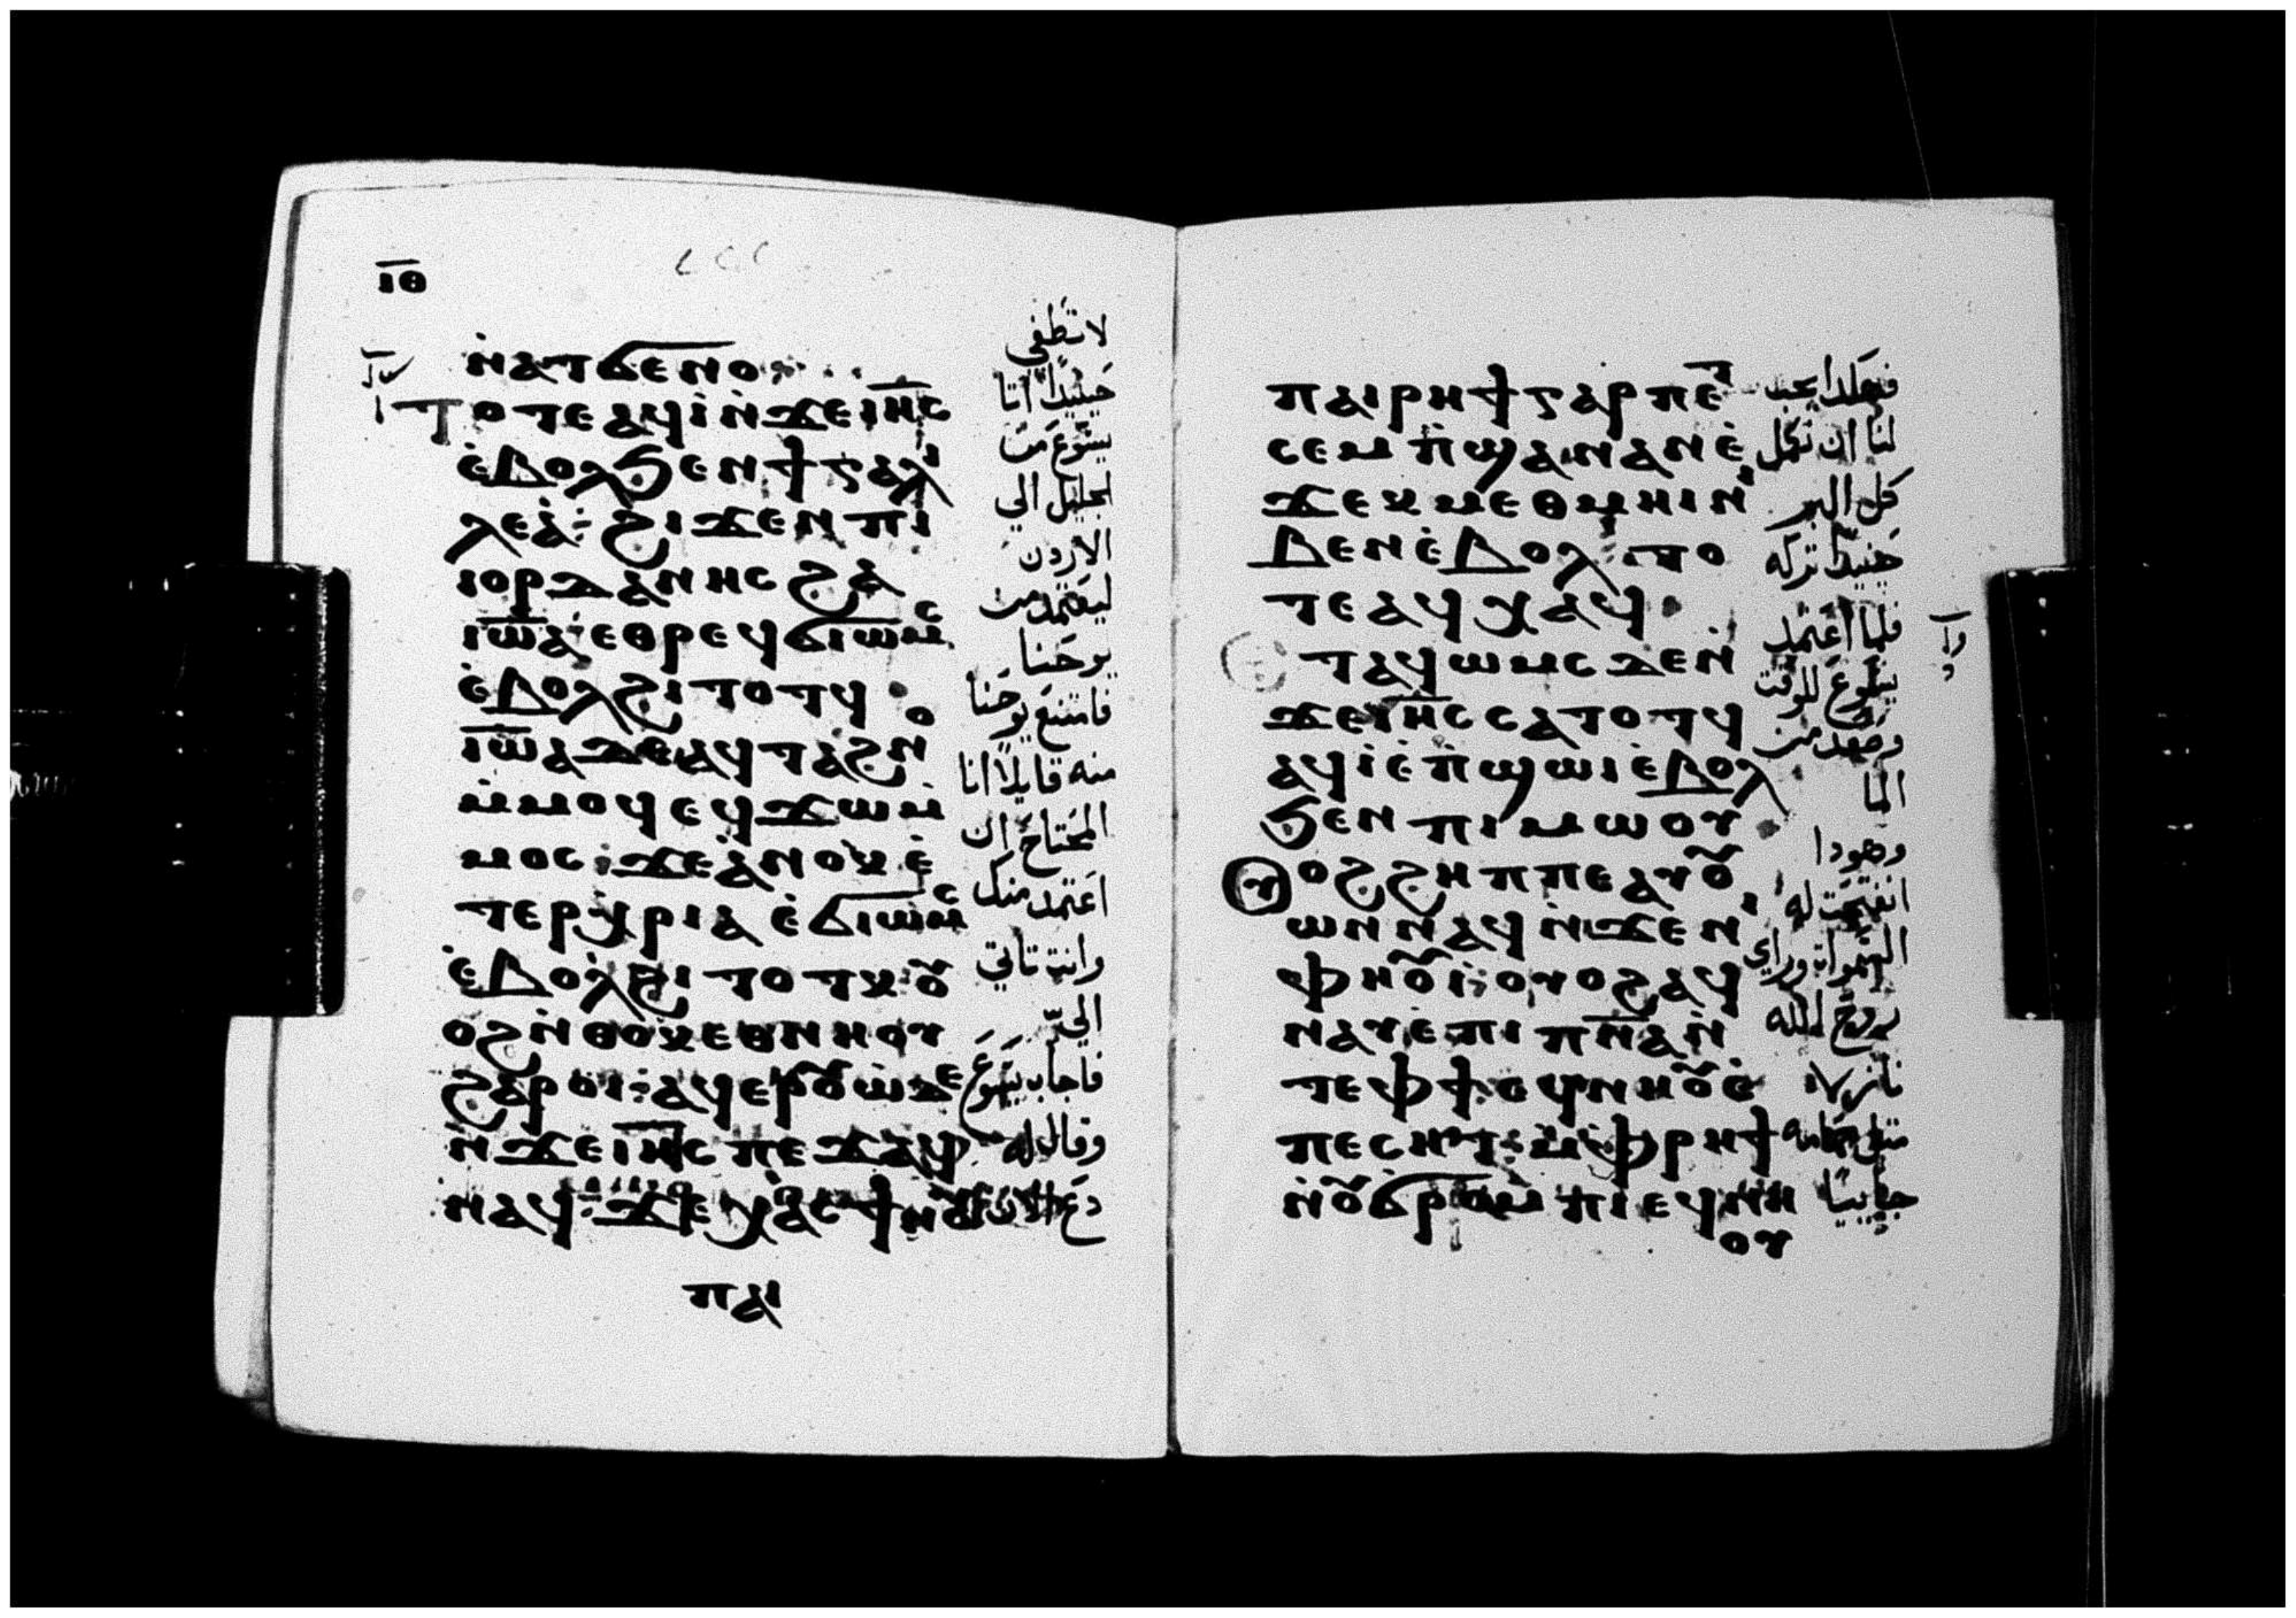 ⲓ̅ⲑ̅
ⲛ̀ⲁⲧϭⲉⲛⲟ
ⲧⲟⲧⲉ ⲁϥⲓ̀ ⲛ̀ϫⲉ ⲓⲏ̅ⲥ̅
ⲉ̀ⲃⲟⲗ ϧⲉⲛ ϯⲅⲁⲗⲓ
ⲗⲉⲁ̀ : ϩⲓϫⲉⲛ ⲡⲓ
ⲓⲟⲣⲇⲁⲛⲏⲥ ϩⲁ
ⲓⲱ̅ⲁ ⲉⲑⲣⲉϥϭⲓⲱⲙⲥ
ⲉ̀ⲃⲟⲗ ϩⲓⲧⲟⲧϥ
ⲓⲱ̅ⲁ ⲇⲉ ⲁϥⲧⲁϩⲛⲟ
ⲙ̀ⲙⲟϥ ⲉϥϫⲱ ⲙ̀
ⲙⲟⲥ : ϫⲉ ⲁ̀ⲛⲟⲕ ⲉ̀
ⲧⲉⲣⲭⲣⲓⲁ ⲉ̀ϭⲓⲱⲙⲥ
ⲉ̀ⲃⲟⲗ ϩⲓⲧⲟⲧⲕ ⲟⲩ
ⲟϩ ⲛ̀ⲑⲟⲕ ⲉⲑⲛⲏⲟⲩ
ϩⲁⲣⲟⲓ : ⲁϥⲉⲣⲟⲩⲱ̀ ⲇⲉ
ⲛ̀ϫⲉ ⲓⲏ̅ⲥ̅ ⲡⲉϫⲁϥ
ⲛⲁϥ : ϫⲉ ⲭⲁⲥ ϯⲛⲟⲩ
ⲡⲁⲓ
لا تطفي
حينيذًا اتا
يسوع من
الجليل الي
الاردن
ليعتمد من
يوحنا
فامتنع يوحنا
منه قايلاً انا
المحتاج ان
اعتمد منك
وانت تاتي
اليّ
فاجاب يسوع
وقال له
دع الان
ⲡⲁⲓⲣⲏϯ ⲅⲁⲣ ⲡⲉⲧ
ⲥⲉⲙⲡ̀ϣⲁ ⲛⲁⲛ ⲉ̀
ϫⲉⲕ ⲙⲉⲑⲙⲏⲓ ⲛⲓ
ⲃⲉⲛ ⲉ̀ⲃⲟⲗ : ⲧⲟ
ⲧⲉ ⲁϥⲭⲁϥ
ⲧⲁϥⲱⲙⲥ ⲇⲉ ⲛ̀
ϫⲉ ⲓⲏ̅ⲥ̅ ⲥⲁⲧⲟⲧϥ
ⲁϥⲓ̀ ⲉ̀ⲡ̀ϣⲱⲓ ⲉ̀ⲃⲟⲗ
ϧⲉⲛ ⲡⲓⲙⲱⲟⲩ
ⲟⲩⲟϩ ϩⲏⲡⲡⲉ ⲁⲩⲟⲩ
ⲱⲛ ⲛⲁϥ ⲛ̀ϫⲉ ⲛⲓ
ⲫⲏⲟⲩⲓ̀ : ⲟⲩⲟϩ ⲁϥ
ⲛⲁⲩ ⲉ̀ⲡⲓⲡ̅ⲛ̅ⲁ̅ ⲛ̀
ⲧⲉ ⲫϯ ⲉϥⲛⲏⲟⲩ ⲉ̀
ⲡⲉⲥⲏⲧ : ⲙ̀ⲫⲣⲏϯ
ⲛ̀ⲟⲩϭⲣⲟⲙⲡⲓ ⲉϥⲛⲏ
ⲟⲩ
فهكذا يجب
لنا ان نكمل
كل البر
حينيذًا تركه
فلما اعتمد
يسوع للوقت
وصعد من
الما
وهوذا
انفتحت له
السموات وراي
روح الله
نازلاً
مثل حمامه
جاييًا